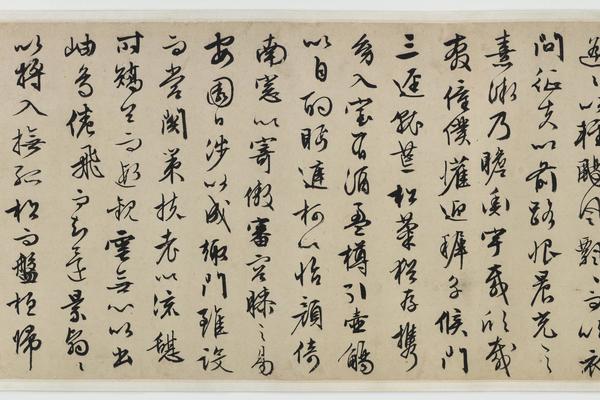 遙〻以輕颺風飄〻而吹衣
問征夫以前路恨晨光之
熹微乃瞻衡宇載欣載
奔僮僕懽迎稚子候門
三逕就荒松菊猶存攜
幼入室有酒盈樽引壺觴
以自酌眄庭柯以怡顏倚
南窻以寄傲審容膝之易
安園日涉以成趣門雖設
而常關策扶老以流憩
時矯首而遐觀雲無心以出
岫鳥倦飛而知還景翳〻
以將入撫孤松而盤桓歸